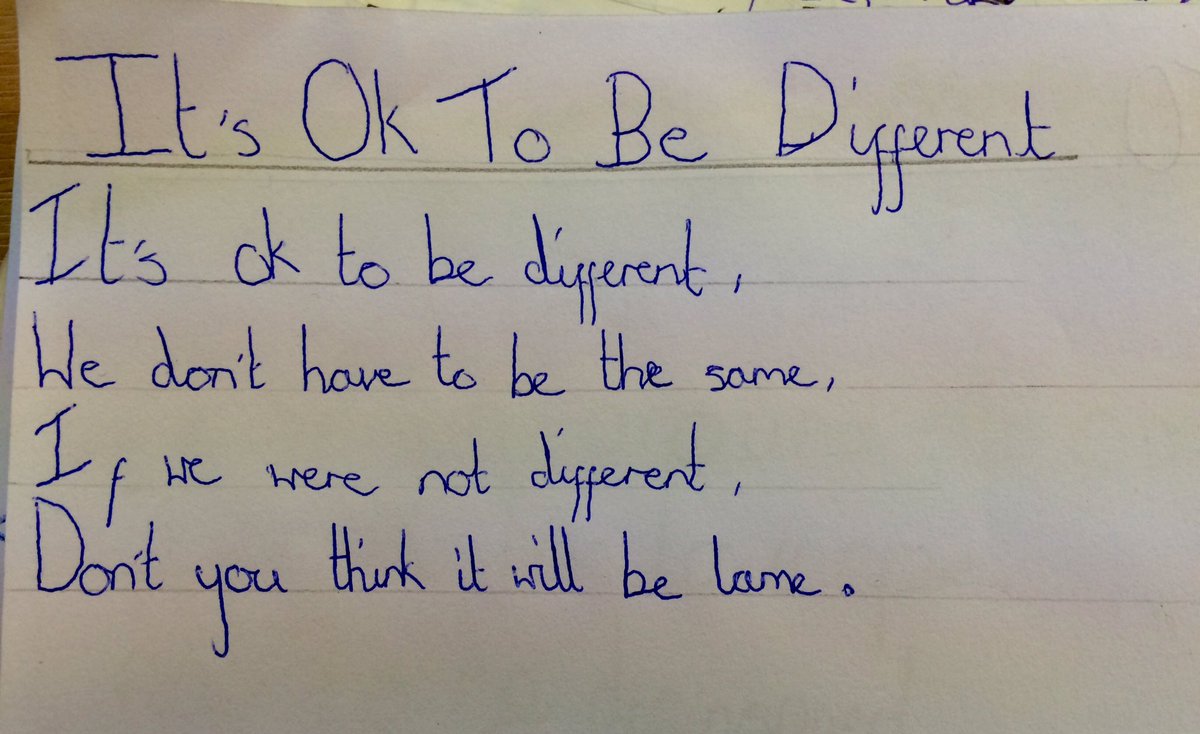 It's Ok To Be Different
It's ok to be different,
We don't have to be the same,
If we were not different,
Don't you think it will be lame.